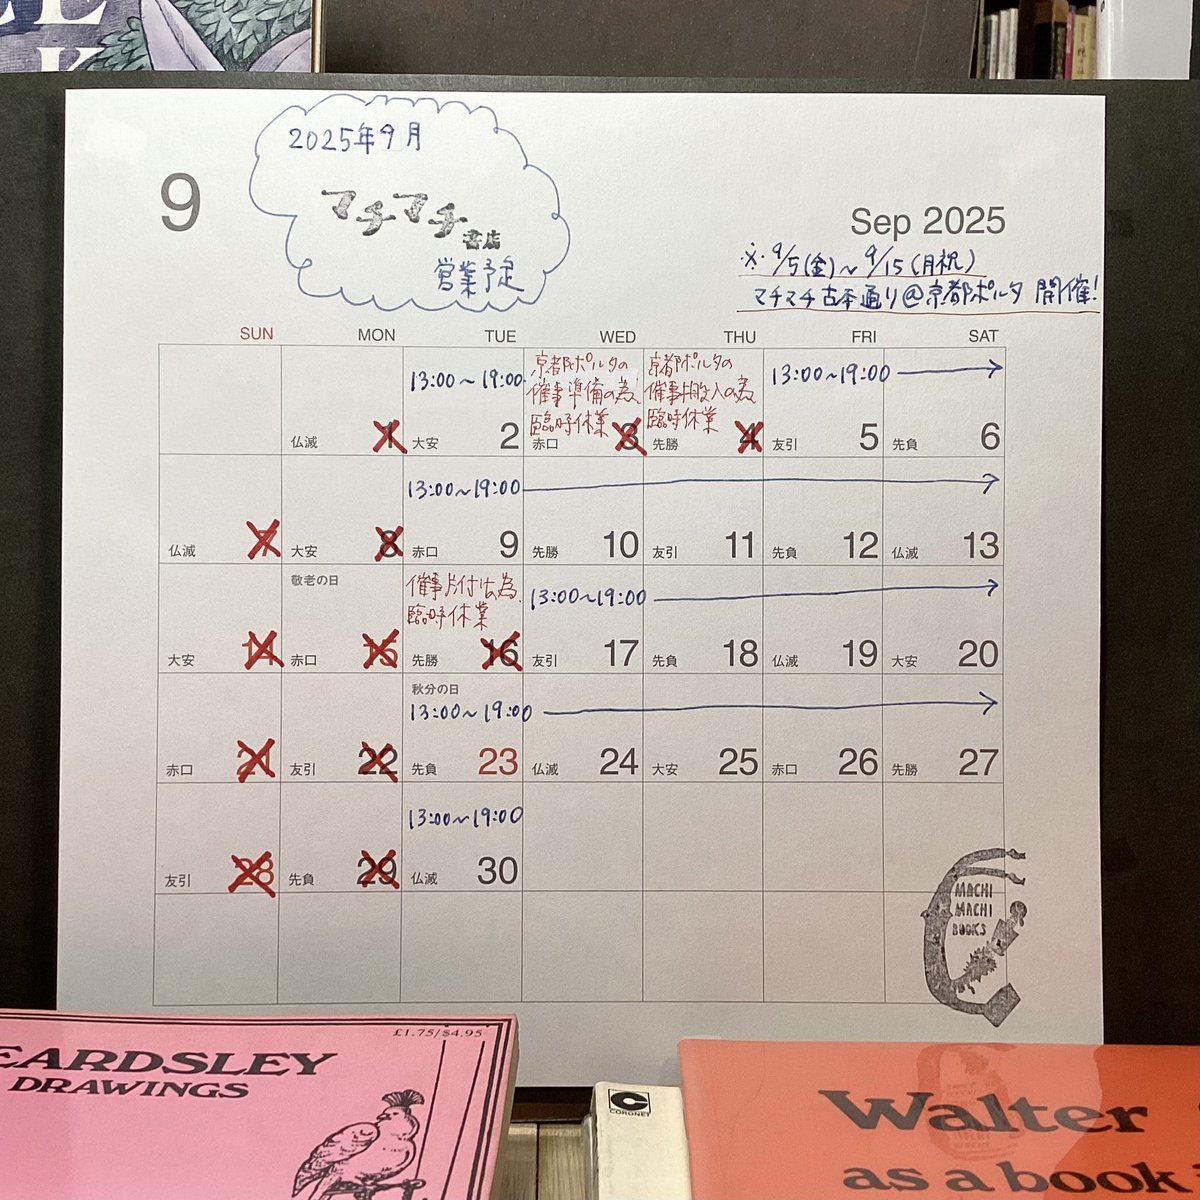 2025年9月
マチマチ書店
営業予定
9
Sep 2025
※9/5(金)~9/15(月祝)
マチマチ古本通り@京都ポルタ 開催!
SUN MON TUE WED THU FRI SAT
13:00~19:00
京都ポルタの
催事準備の為、
臨時休業
京都ポルタの
催事搬入の為
臨時休業
13:00~19:00
仏滅 1 大安 2 赤口 3 先勝 4 友引 5 先負 6
13:00~19:00
仏滅 7 大安 8 赤口 9 先勝 10 友引 11 先負 12 仏滅 13
敬老の日
催事片付けの為、
臨時休業
13:00~19:00
大安 14 赤口 15 先勝 16 友引 17 先負 18 仏滅 19 大安 20
秋分の日
13:00~19:00
赤口 21 友引 22 先負 23 仏滅 24 大安 25 赤口 26 先勝 27
13:00~19:00
友引 28 先負 29 仏滅 30
MACHI
MACHI
BOOKS
£1.75/$4.95
EARDSLEY
DRAWINGS
CORONET
Walter
as a book